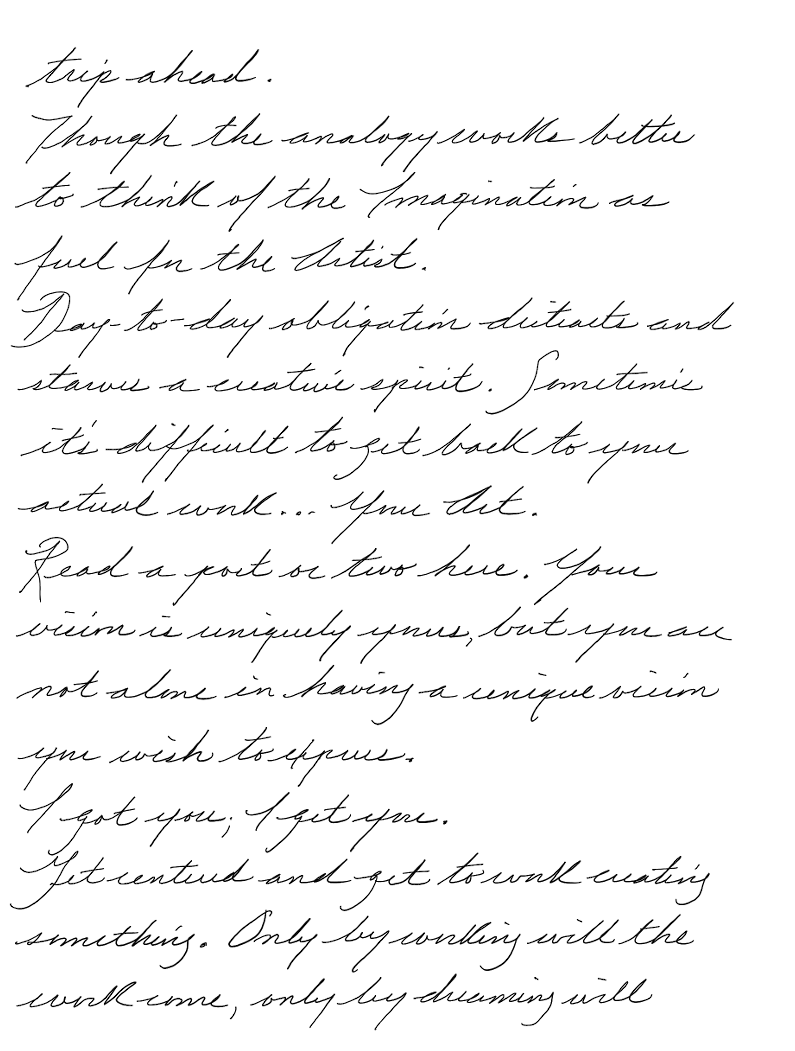 trip ahead.
Though the analogy works better
to think of the Imagination as
fuel for the Artist.
Day-to-day obligation distracts and
starves a creative spirit. Sometimes
it's difficult to get back to your
actual work... Your Art.
Read a post or two here. Your
vision is uniquely yours, but you are
not alone in having a unique vision
you wish to express.
I got you; I get you.
Get centered and get to work creating
something. Only by working will the
work come, only by dreaming will